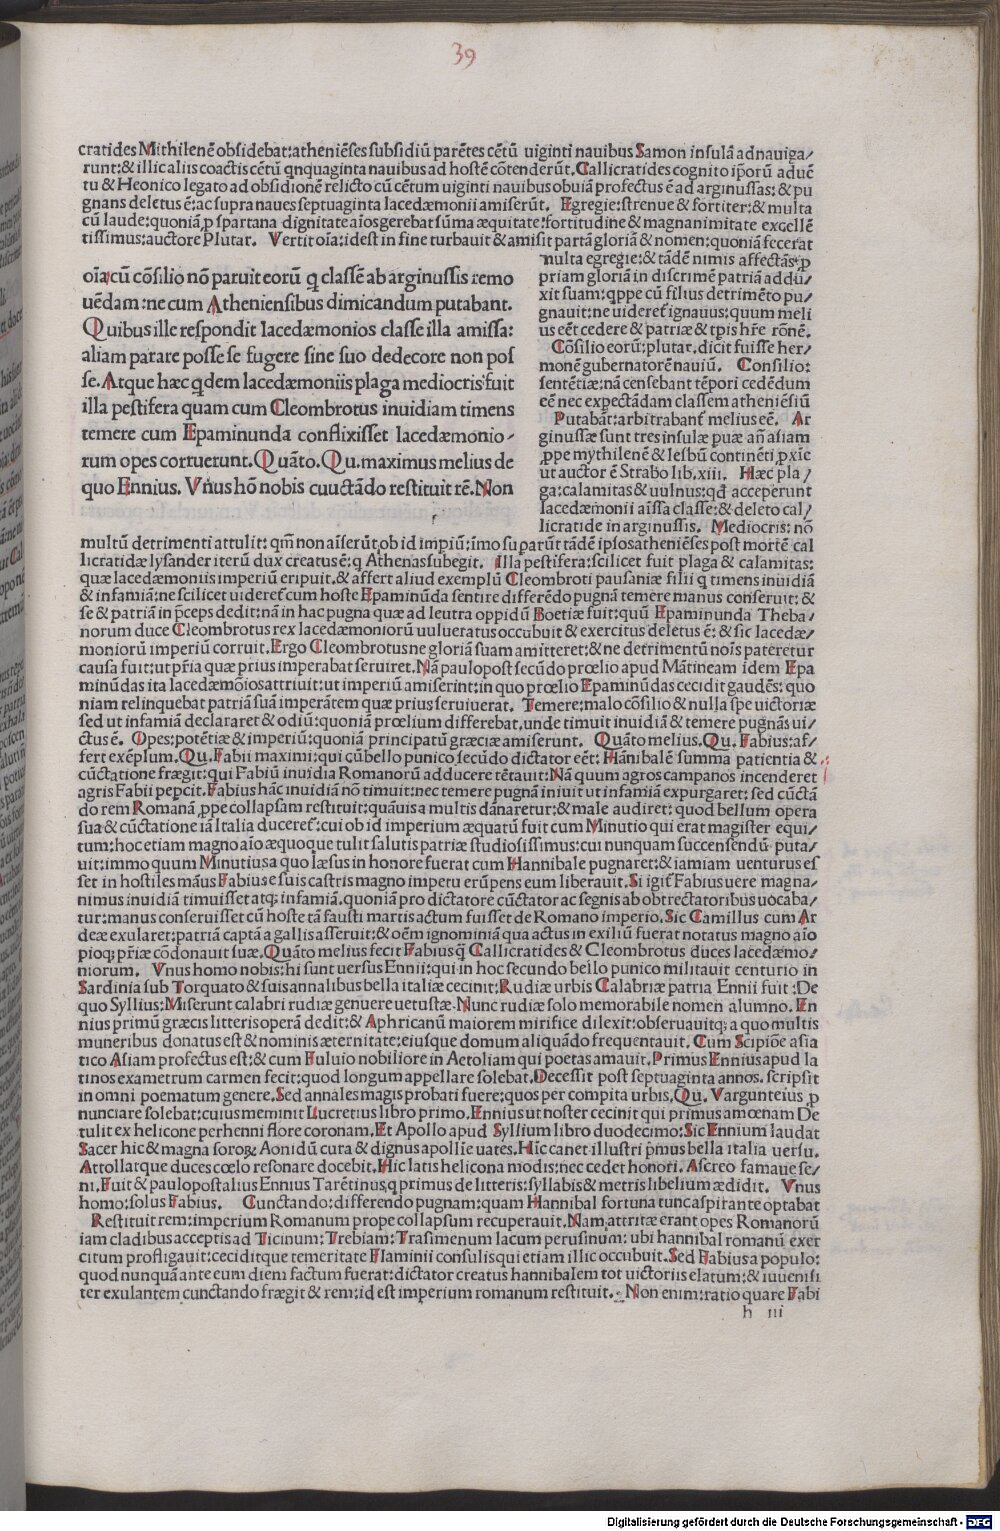 39
cratides Mithilenē obsidebat:atheniēses subsidiū parētes cētū uiginti nauibus Samon insulā adnauiga/
runt:& illic aliis coactis cētū qnquaginta nauibus ad hostē cōtenderūt. Callicratides cognito ip̄orū aduē
tu & Heonico legato ad obsidionē relicto cū cētum uiginti nauibus obuiā profectus ē ad arginussas: & pu
gnans deletus ē: ac supra naues septuaginta lacedæmonii amiserūt. Egregie: strenue & fortiter: & multa
cū laude: quoniā ꝓ spartana dignitate aīos gerebat sūma æquitate: fortitudine & magnanimitate excellē
tissimus: auctore Plutar. Vertit oīa: idest in fine turbauit & amisit partā gloriā & nomen: quoniā fecerat
multa egregie: & tādē nimis affectās ꝓ
priam gloriā in discrimē patriā addu/
xit suam: qppe cū filius detrimēto pu/
gnauit: ne uideret̄ ignauus: quum meli
us eēt cedere & patriæ & tp̄is hr̄e rōnē.
Cōsilio eorū: plutar. dicit fuisse her/
monē gubernatorē nauiū. Consilio:
sentētiæ: nā censebant tēpori cedēdum
eē nec expectādam classem atheniēsiū
Putabāt: arbitrabant̄ melius eē. Ar
ginussæ sunt tres insulæ puæ an̄ asiam
ꝓpe mythilenē & lesbū continēti ꝓxīe
ut auctor ē Strabo lib. xiii. Hæc pla/
ga: calamitas & uulnus: qd̄ acceperunt
lacedæmonii aīssa classe: & deleto cal/
licratide in arginussis. Mediocris: nō
oīa cū cōsilio nō paruit eorū q classē ab arginussis remo
uēdam: ne cum Atheniensibus dimicandum putabant.
Quibus ille respondit lacedæmonios classe illa amissa:
aliam parare posse se fugere sine suo dedecore non pos
se. Atque hæc qdem lacedæmoniis plaga mediocris fuit
illa pestifera quam cum Cleombrotus inuidiam timens
temere cum Epaminunda conflixisset lacedæmonio/
rum opes corruerunt. Quāto. Qu. maximus melius de
quo Ennius. Vn̄us hō nobis cuuctādo restituit rē. Non
multū detrimenti attulit: qm̄ non aīserūt, ob id impiū: īmo suparūt tādē ipsos atheniēses post mortē cal
licratidæ lysander iterū dux creatus ē: q Athenas subegit. Illa pestifera: scilicet fuit plaga & calamitas:
quæ lacedæmoniis imperiū eripuit. & affert aliud exemplū Cleombroti pausaniæ filii q timens inuidiā
& infamiā: ne scilicet uideret̄ cum hoste Epaminūda sentire differēdo pugnā temere manus conseruit: &
se & patriā in p̄ceps dedit: nā in hac pugna quæ ad leutra oppidū Boetiæ fuit: quū Epaminunda Theba/
norum duce Cleombrotus rex lacedæmoniorū uulueratus occubuit & exercitus deletus ē: & sic lacedæ/
moniorū imperiū corruit. Ergo Cleombrotus ne gloriā suam amitteret: & ne detrimētū noīs pateretur
causa fuit: ut pr̄ia quæ prius imperabat seruiret. Nā paulopost secūdo prœlio apud Mātineam idem Epa
minūdas ita lacedæmōios attriuit: ut imperiū amiserint: in quo prœlio Epaminūdas cecidit gaudēs: quo
niam relinquebat patriā suā imperātem quæ prius seruiuerat. Temere: malo cōsilio & nulla spe uictoriæ
sed ut infamiā declararet & odiū: quoniā prœlium differebat, unde timuit inuidiā & temere pugnās ui/
ctus ē. Opes: potētiæ & imperiū: quoniā principatū græciæ amiserunt. Quāto melius. Qu. Fabius: af/
fert exēplum. Qu. Fabii maximi: qui cū bello punico secūdo dictator eēt: Hānibalē summa patientia &
cūctatione frægit: qui Fabiū inuidia Romanorū adducere tētauit: Nā quum agros campanos incenderet
agris Fabii pepcit. Fabius hāc inuidiā nō timuit: nec temere pugnā iniuit ut infamiā expurgaret: sed cūctā
do rem Romanā ꝓpe collapsam restituit: quāuis a multis dānaretur: & male audiret: quod bellum opera
sua & cūctatione iā Italia duceret̄: cui ob id imperium æquatū fuit cum Minutio qui erat magister equi/
tum: hoc etiam magno aīo æquoque tulit salutis patriæ studiosissimus: cui nunquam succensendū puta/
uit: immo quum Minutius a quo læsus in honore fuerat cum Hannibale pugnaret: & iamiam uenturus es
set in hostiles māus Fabius e suis castris magno impetu erūpens eum liberauit. Si igit̄ Fabius uere magna/
nimus inuidiā timuisset atq; infamiā. quoniā pro dictatore cūctator ac segnis ab obtrectatoribus uocaba/
tur: manus conseruisset cū hoste tā fausti martis actum fuisset de Romano imperio. Sic Camillus cum Ar
deæ exularet: patriā captā a gallis asseruit: & oēm ignominiā qua actus in exiliū fuerat notatus magno aīo
pioq; pr̄iæ cōdonauit suæ. Quāto melius fecit Fabius q̄ Callicratides & Cleombrotus duces lacedæmo/
niorum. Vnus homo nobis: hi sunt uersus Ennii: qui in hoc secundo bello punico militauit centurio in
Sardinia sub Torquato & suis annalibus bella italiæ cecinit: Rudiæ urbis Calabriæ patria Ennii fuit: De
quo Syllius: Miserunt calabri rudiæ genuere uetustæ. Nunc rudiæ solo memorabile nomen alumno. En
nius primū græcis litteris operā dedit: & Aphricanū maiorem mirifice dilexit: obseruauitq; a quo multis
muneribus donatus est & nominis æternitate: eiusque domum aliquādo frequentauit. Cum Scipiōe asia
tico Asiam profectus est: & cum Fuluio nobiliore in Aetoliam qui poetas amauit. Primus Ennius apud la
tinos exametrum carmen fecit: quod longum appellare solebat. Decessit post septuaginta annos. scripsit
in omni poematum genere. Sed annales magis probati fuere: quos per compita urbis. Qu. Vargunteius ꝓ
nunciare solebat: cuius meminit Lucretius libro primo. Ennius ut noster cecinit qui primus amœnam De
tulit ex helicone perhenni flore coronam. Et Apollo apud Syllium libro duodecimo: Sic Ennium laudat
Sacer hic & magna sororꝝ Aonidū cura & dignus apollīe uates. Hic canet illustri p̄mus bella italia uersu.
Attollatque duces cœlo resonare docebit. Hic latis helicona modis: nec cedet honori. Ascreo famaue se/
ni. Fuit & paulopost alius Ennius Tarētinus, q primus de litteris: syllabis & metris libelium ædidit. Vnus
homo: solus Fabius. Cunctando: differendo pugnam: quam Hannibal fortuna tunc aspirante optabat
Restituit rem: imperium Romanum prope collapsum recuperauit. Nam attritæ erant opes Romanorū
iam cladibus acceptis ad Ticinum: Trebiam: Trasimenum lacum perusinum: ubi hannibal romanū exer
citum profligauit: ceciditque temeritate Flaminii consulis qui etiam illic occubuit. Sed Fabius a populo:
quod nunquā ante eum diem factum fuerat: dictator creatus hannibalem tot uictoriis elatum: & iuuenili
ter exulantem cunctando frægit & rem: id est imperium romanum restituit. Non enim: ratio quare Fabi
h iii
Digitalisierung gefördert durch die Deutsche Forschungsgemeinschaft - DFG